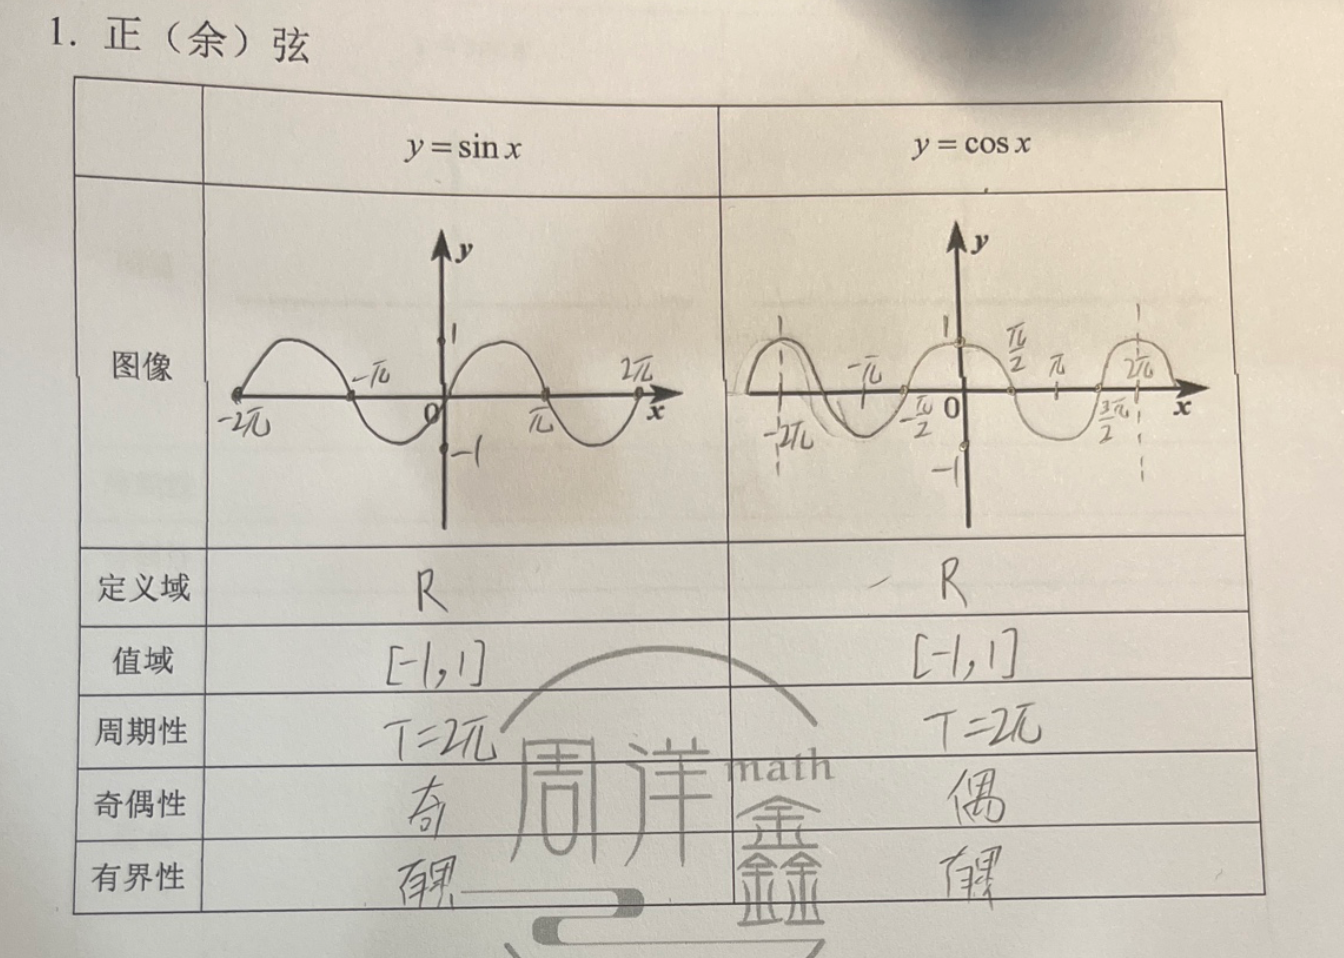 1. 正（余）弦
y = sin x y = cos x
图像
y
1
-2π -π 0 π 2π x
-1
y
1
-2π -π -π/2 0 π/2 π 3π/2 2π x
-1
定义域 R R
值域 [-1,1] [-1,1]
周期性 T=2π T=2π
奇偶性 奇 偶
有界性 有界 有界
周洋math
鑫